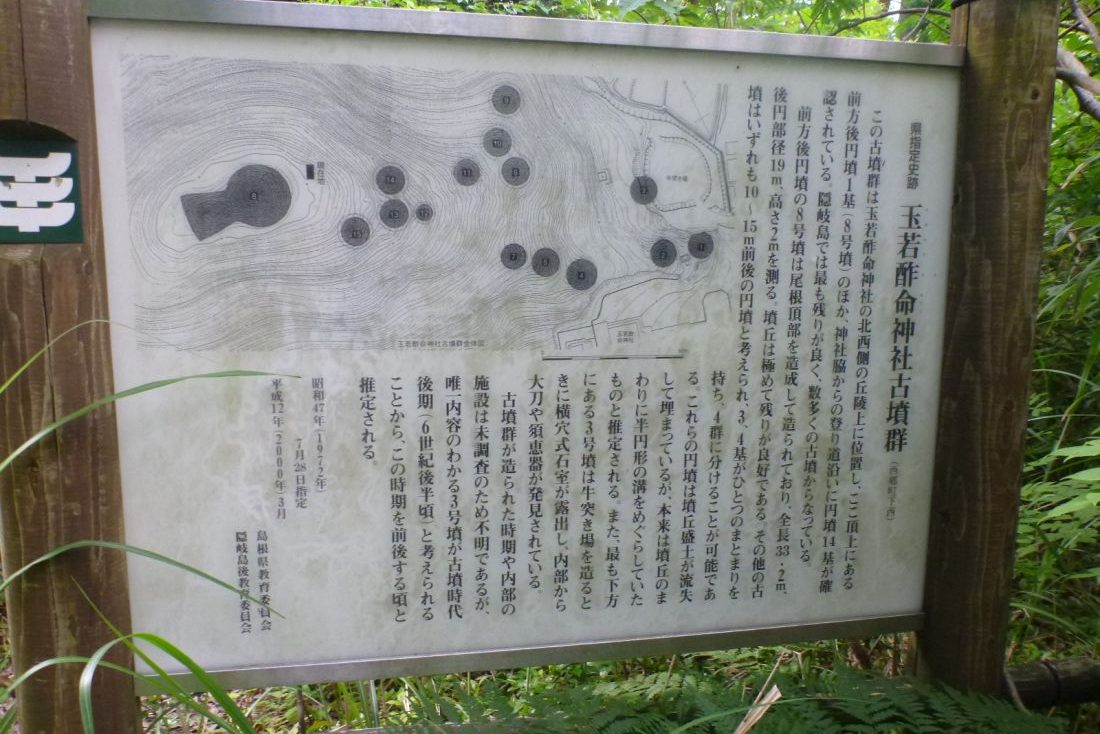 県指定史跡
玉若酢命神社古墳群
(西郷町下西)
この古墳群は玉若酢命神社の北西側の丘陵上に位置し、ここ頂上にある
前方後円墳1基(8号墳)のほか、神社脇からの登り道沿いに円墳14基が確
認されている。隠岐島では最も残りが良く、数多くの古墳からなっている。
前方後円墳の8号墳は尾根頂部を造成して造られており、全長33.2m、
後円部径19m、高さ2mを測る。墳丘は極めて残りが良好である。その他の古
墳はいずれも10~15m前後の円墳と考えられ、3、4基がひとつのまとまりを
持ち、4群に分けることが可能であ
る。これらの円墳は墳丘盛土が流失
して埋まっているが、本来は墳丘のま
わりに半円形の溝をめぐらしていた
ものと推定される。また、最も下方
にある3号墳は牛突き場を造ると
きに横穴式石室が露出し、内部から
大刀や須恵器が発見されている。
古墳群が造られた時期や内部の
施設は未調査のため不明であるが、
唯一内容のわかる3号墳が古墳時代
後期(6世紀後半頃)と考えられる
ことから、この時期を前後する頃と
推定される。
昭和47年(1972年)
7月28日指定
平成12年(2000年)3月
島根県教育委員会
隠岐島後教育委員会
現在地
牛突き場
玉若酢
命神社
玉若酢命神社古墳群全体図
9
10
11
14
13
12
15
8
7
4
2
1